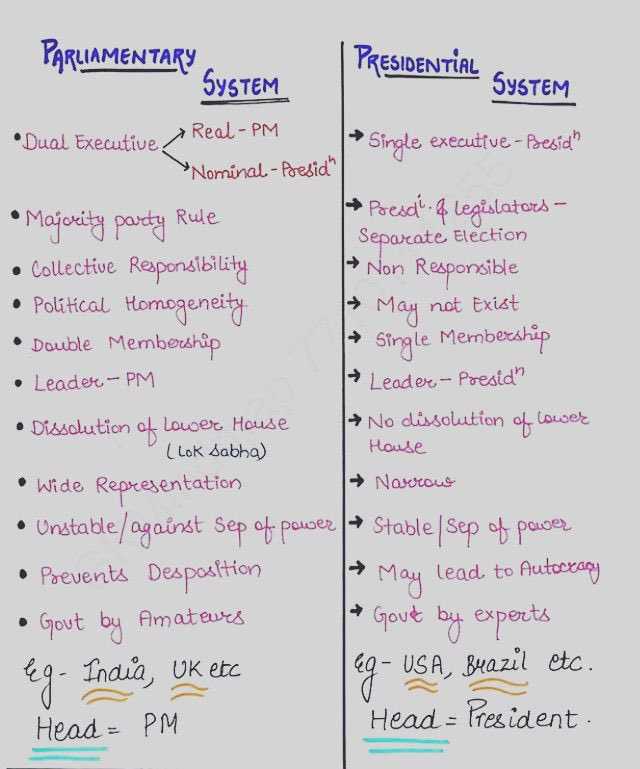 PARLIAMENTARY
SYSTEM
• Dual Executive → Real - PM
→ Nominal - Presidⁿ
• Majority party Rule
• Collective Responsibility
• Political Homogeneity
• Double Membership
• Leader - PM
• Dissolution of Lower House
(Lok Sabha)
• Wide Representation
• Unstable/against Sep of power
• Prevents Desposition
• Govt by Amateurs
Eg - India, UK etc
Head = PM
PRESIDENTIAL
SYSTEM
→ Single executive - Presidⁿ
→ Presdⁱ. & legislators -
Separate Election
→ Non Responsible
→ May not Exist
→ Single Membership
→ Leader - Presidⁿ
→ No dissolution of lower
House
→ Narrow
→ Stable/Sep of power
→ May lead to Autocracy
→ Govt by experts
Eg - USA, Brazil etc.
Head = President.